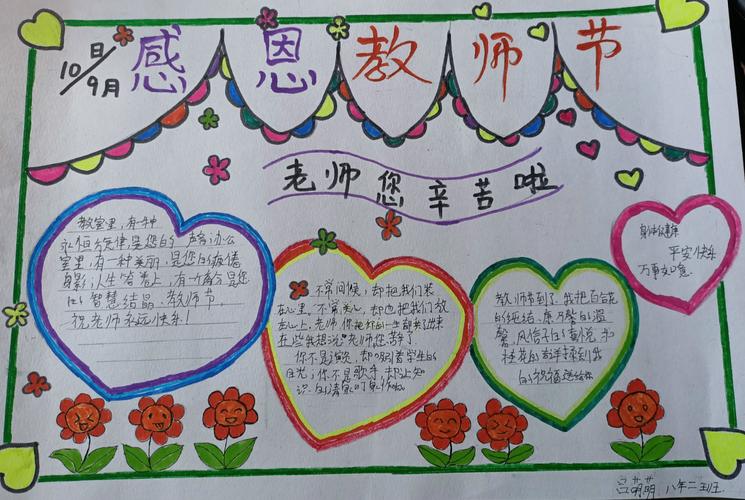 感恩教师节
10日/9月
老师您辛苦啦
教室里,有一种
永恒旋律是您的声音;办公
室里,有一种美丽,是您的疲倦
身影;人生答卷上,有一份高分是您
的智慧结晶。教师节
祝老师永远快乐!
不常问候,却把我们装
在心里,不常关心,却也把我们放
在心上,老师,你把
在些我想说"老师您辛苦了
你不是演员,却吸引着学生的
目光;你不是歌手,却让知
识的清泉叮
教师节到了,我把百合花
的纯洁、康乃馨的温
馨、风信子的喜悦,和
桂花的
的祝福送给你
身体健康
平安快乐
万事如意
吕萌萌 八年二班